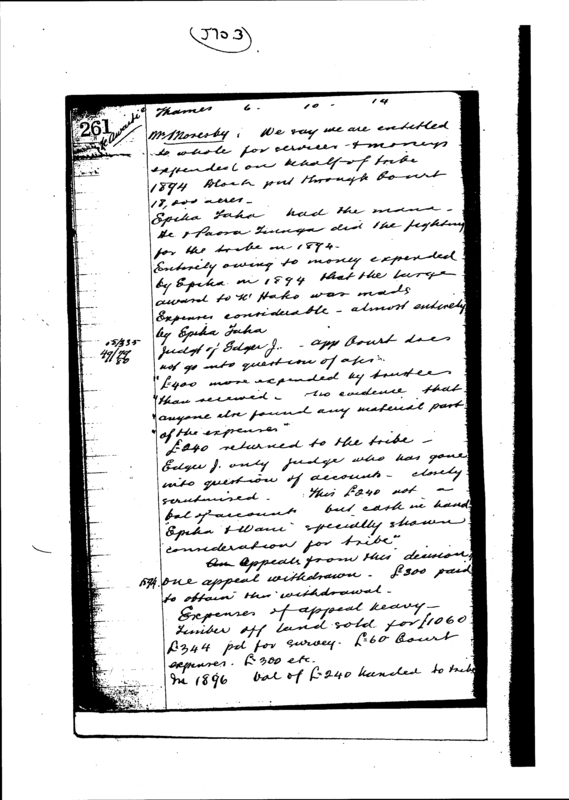 (J703)
261
Thames 6 - 10 - 14
Mr Moresby: We say we are entitled
to whole for services & moneys
expended on behalf of tribe
1894 Block put through Court
18,000 acres -
Epiha Taha had the mana -
He & Paora Tiunga did the fighting
for the tribe in 1894 -
Entirely owing to money expended
by Epiha in 1894 that the large
award to N' Hako was made
Expenses considerable - almost entirely
by Epiha Taha
Judgt of Edger J. - app Court does
not go into question of
"£400 more expended by trustees
"than received - no evidence that
"anyone else found any material part
"of the expenses"
£240 returned to the tribe -
Edger J. only judge who has gone
into question of accounts - closely
scrutinised. This £240 not a
bal of accounts but cash in hand
Epiha & Wani specially shown
consideration for tribe"
Appeals from this decision,
one appeal withdrawn - £300 paid
to obtain this withdrawal -
Expenses of appeal heavy -
Timber off land sold for £1060
£344 pd for survey. £60 Court
expenses. £300 etc.
In 1896 bal of £240 handed to tribe